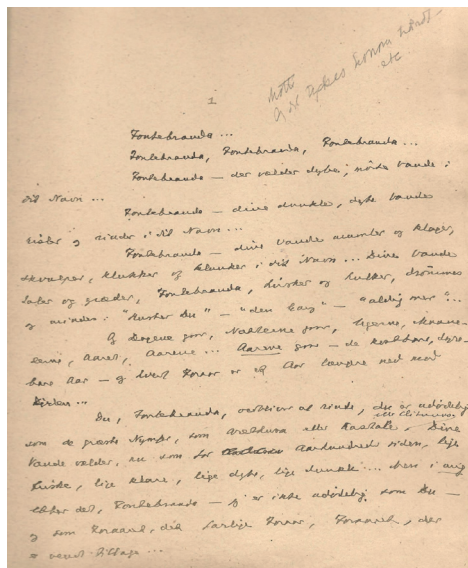 1
Fontebranda ...
Fontebranda, Fontebranda, Fontebranda ...
Fontebranda — der vælder dybe, mørke Vande i
dit Navn ...
Fontebranda — dine dunkle, dybe Vande
risler og rinder i dit Navn ...
Fontebranda — dine Vande mumler og klager,
skvulper, klukker og klunker i dit Navn ... Dine Vande
taler og græder, Fontebranda, hvisker og hulker, drømmer
og minder: "husker Du" — "den Gang" — "aldrig mer" ...
Og Dagene gaar, Nætterne gaar, Ugerne, Maane-
derne, Aaret, Aarene ... Aarene gaar — de kostbare, dyre-
bare Aar — og hvert Foraar er et Aar længere ned mod
Du, Fontebranda, vedbliver at rinde, du er udødelig
som de græske Nymfer, som Arethusa eller Kastalia. Dine
Vande vælder, nu som for Aarhundreder siden, lige
friske, lige klare, lige dybe, lige dunkle ... Men i mig
Fontebranda — jeg er ikke udødelig som Du —
og som Foraaret, det Foraar, Foraaret, der
vendt tilbage ...